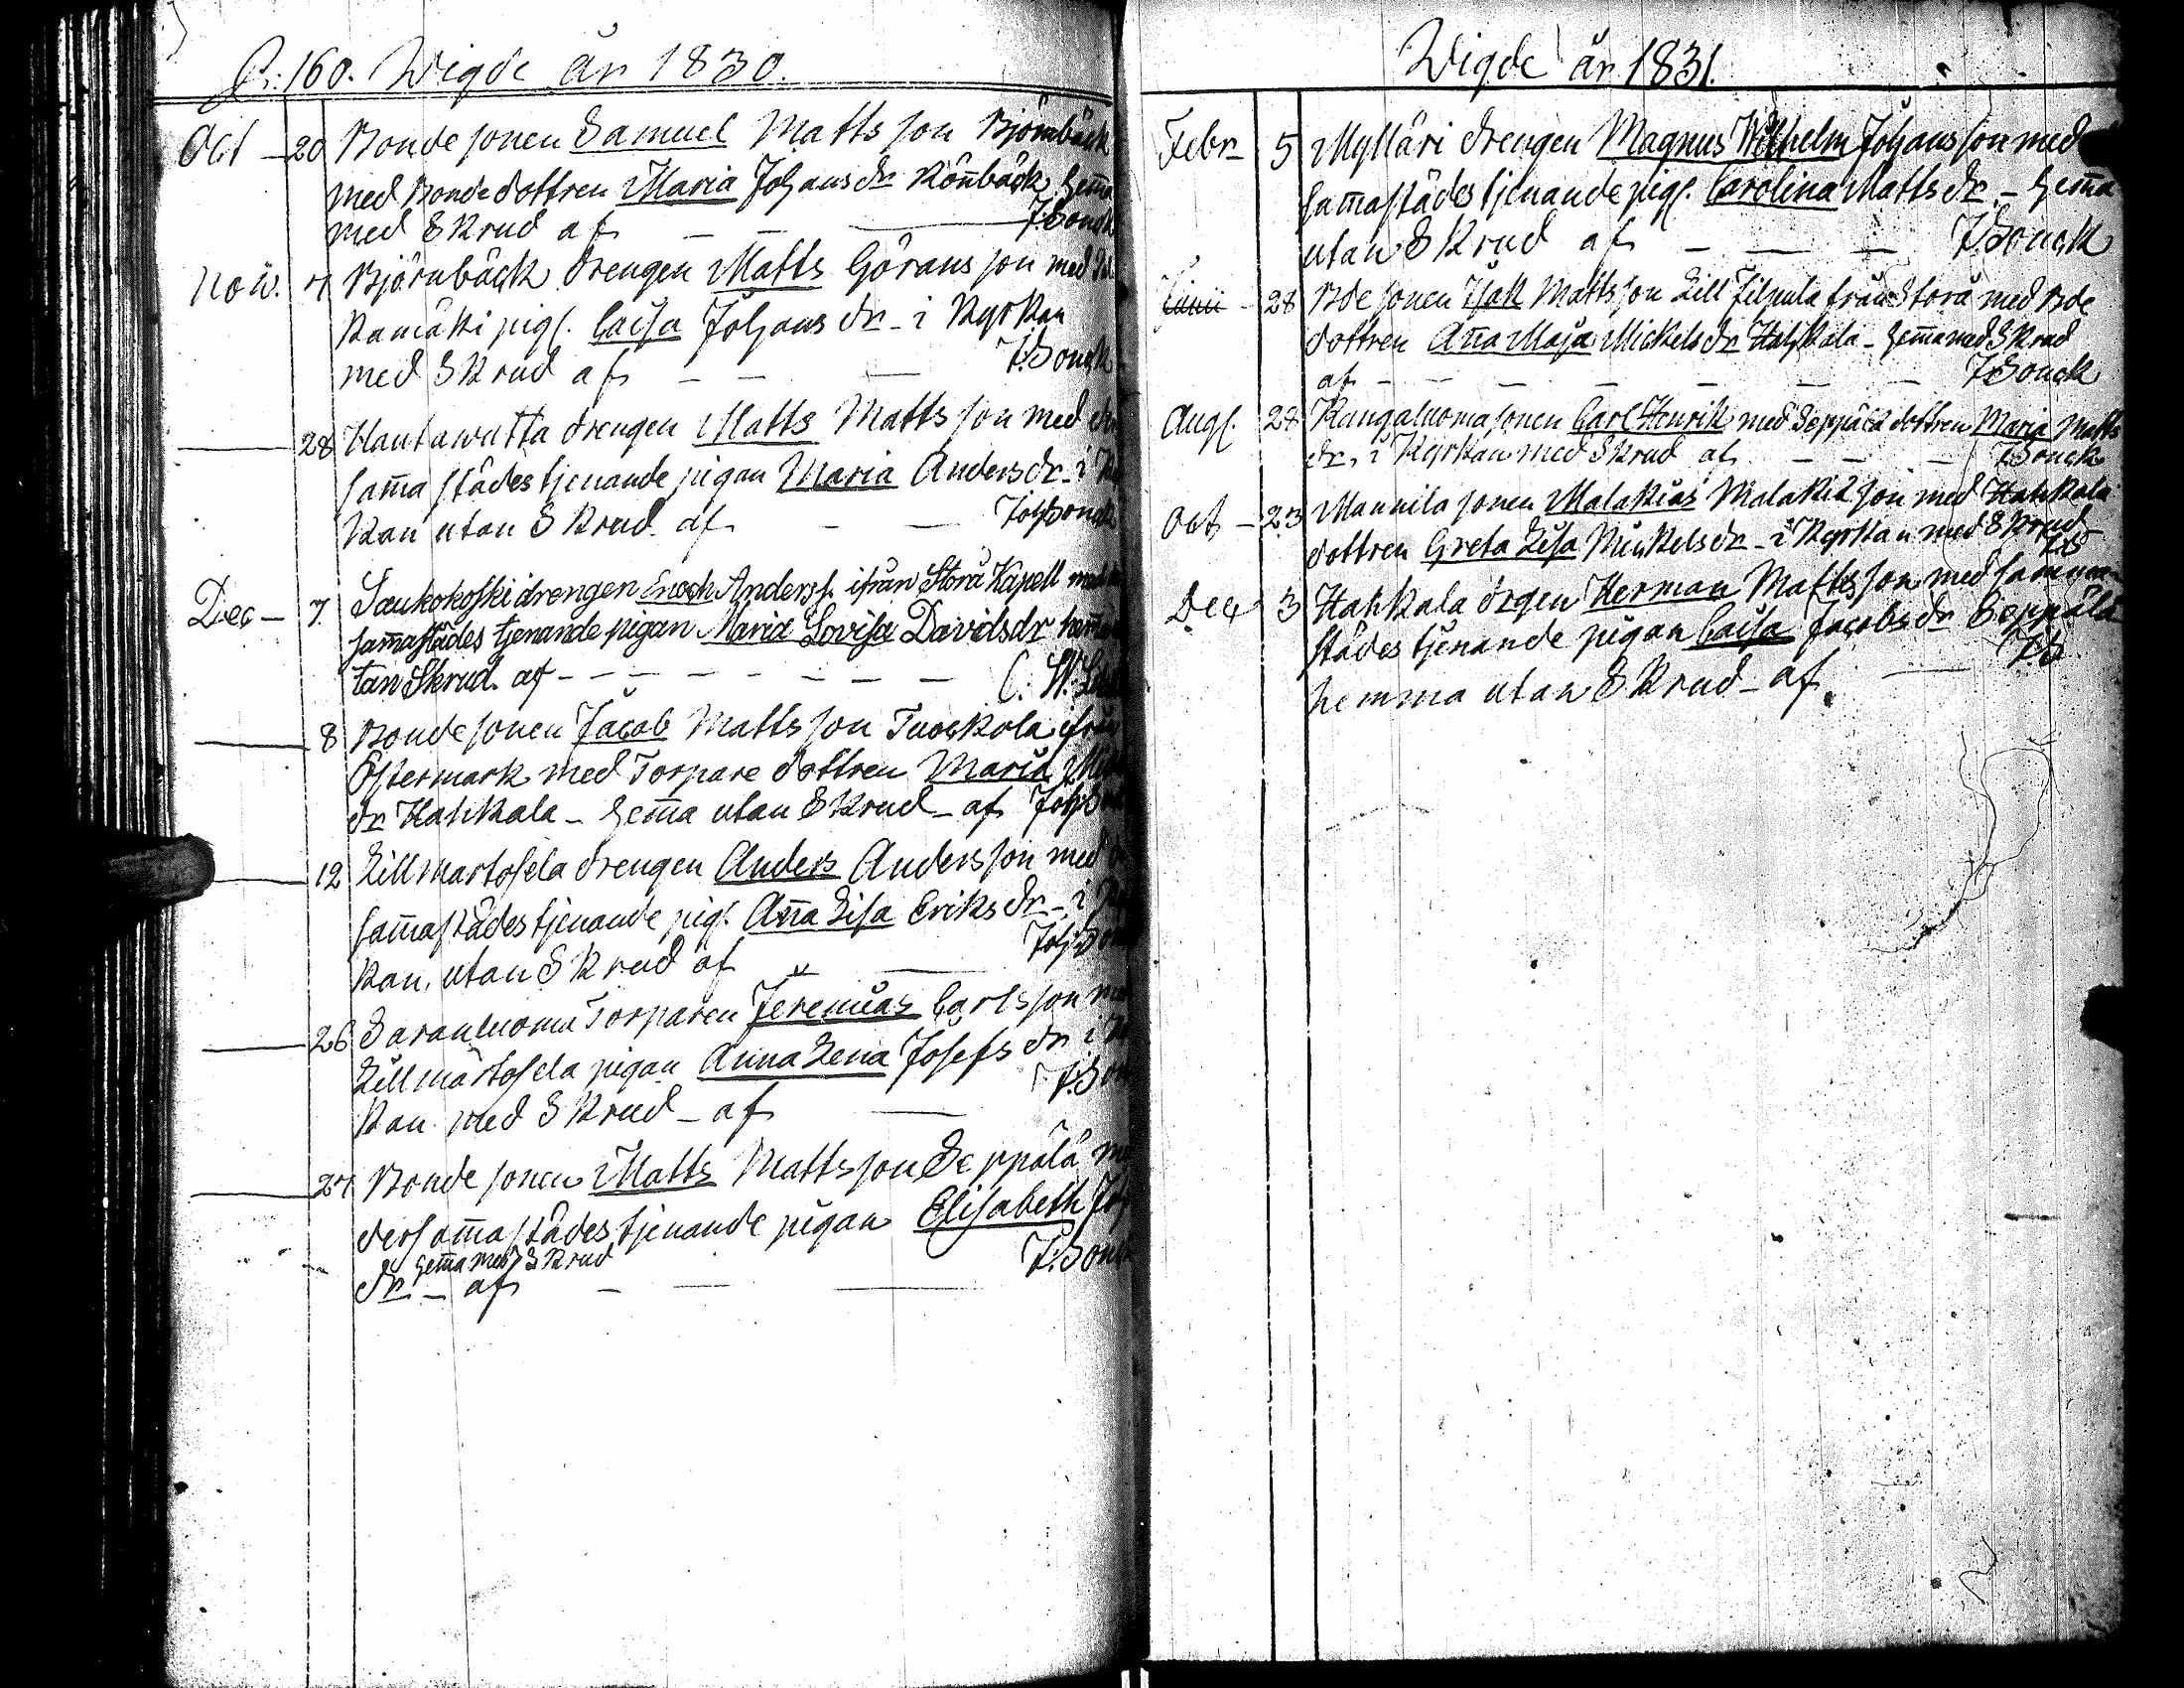 P. 160. Wigde år 1830.
Oct 20 Bondesonen Samuel Mattsson Björnbäck
med Bondedottren Maria Johansdr Rönbäck hema
med Skrud af J.Bonck
Nov. 7 Björnbäck drengen Matts Göransson med
kamäki pig. Caisa Johansdr i Kyrkan
med Skrud af J.Bonck
28 Hautawatta drengen Matts Mattsson med
samastädes tjenande pigan Maria Andersdr i
kan utan Skrud af Joh Bonck
Dec 7. Saukokoski drengen Enoch Anderss. ifrån Storå Kapell med
samastädes tjenande pigan Maria Lovisa Davidsdr
tan Skrud. af C. W.
8 Bondesonen Jacob Mattsson Tuockola ifrån
Östermark med Torpare dottren Maria
dr Hahkala hema utan Skrud af Joh
12 Lillmartosela drengen Anders Andersson med
samastädes tjenande pig. Ana Lisa Eriksdr i
kan utan Skrud af Joh
26 Saranluoma Torparen Jeremias Carlsson
Lillmårtosela pigan Anna Lena Josefsdr i
kan med Skrud af J.
27 Bondesonen Matts Mattsson Seppälä
dersamastädes tjenande pigan Elisabeth Joh
hema med Skrud
dr af J.Bonck
Wigde år 1831.
Febr 5 Mylläri drengen Magnus Wilhelm Johansson med
samastädes tjenande pig. Carolina Mattsdr hema
utan Skrud af J.Bonck
Junii 28 Bdesonen Isak Mattsson Lill Filpula från Storå med Bde
dottren Ana Maja Mickelsdr Hahkala hema med Skrud
af J.Bonck
Aug. 28 Kangasluomasonen Carl Henrik med Seppälä dottren Maria Matts
dr. i Kyrkan med Skrud af J.Bonck
Oct 23 Mannila sonen Malakias Malakiasson med Hahkala
dottren Greta Lisa Mickelsdr i Kyrkan med Skrud
JB
Dec 3 Hahkala drgen Herman Mattsson med samma-
städes tjenande pigan Caisa Jacobsdr Seppälä
hemma utan Skrud af JB